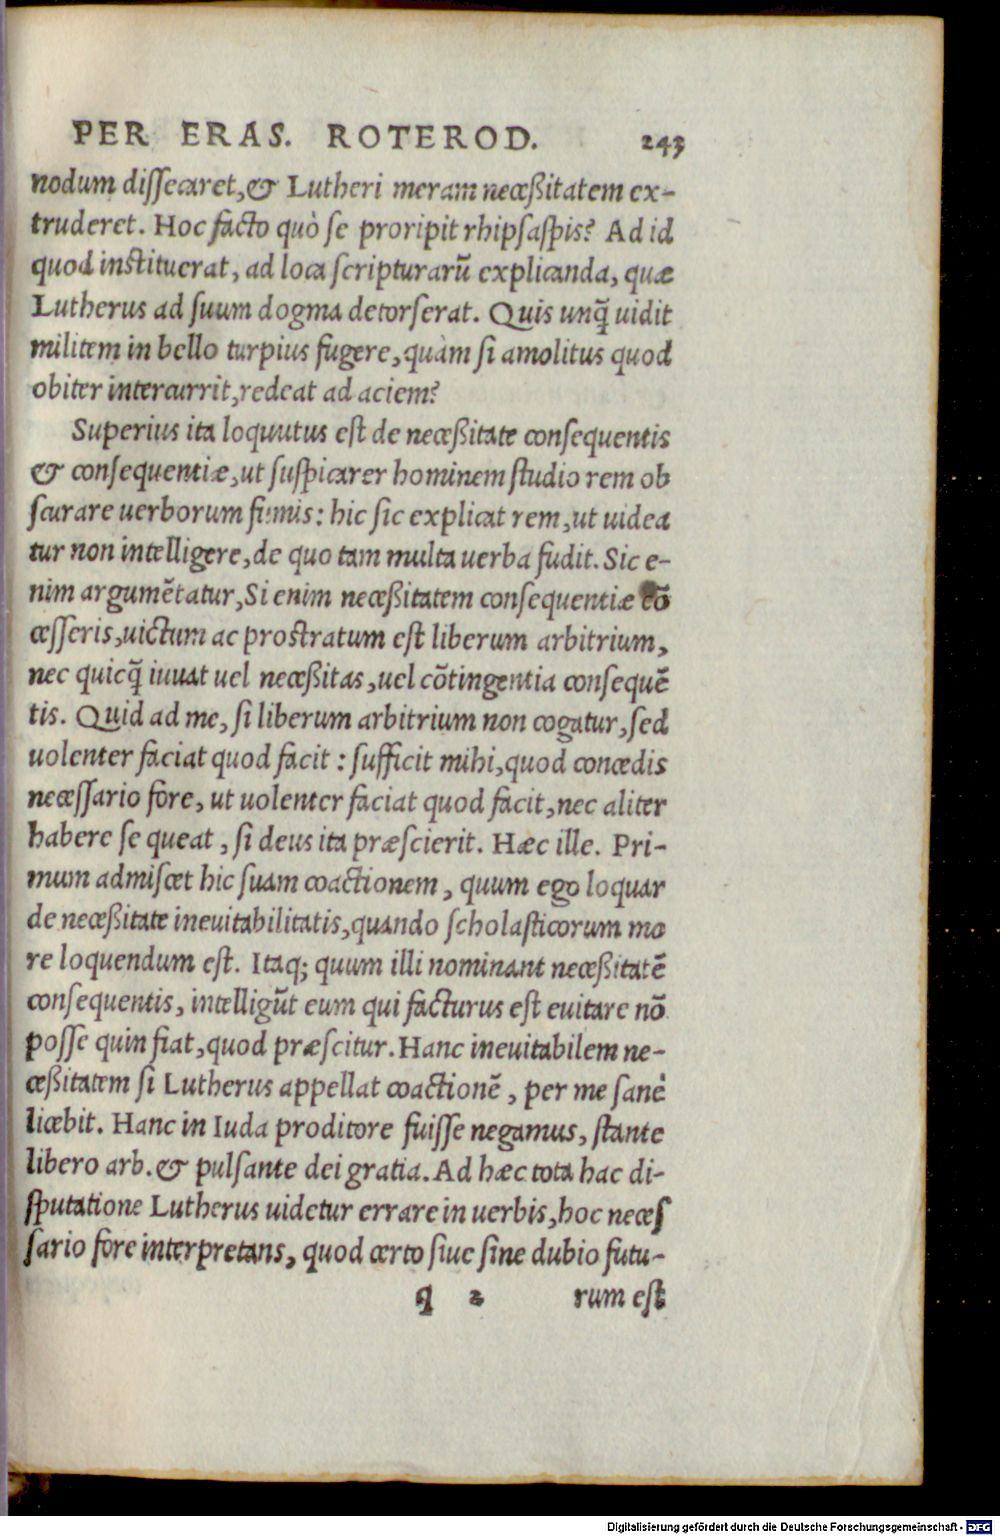 PER ERAS. ROTEROD. 243
nodum dissecaret, & Lutheri meram necessitatem ex-
truderet. Hoc facto quò se proripit rhipsaspis? Ad id
quod instituerat, ad loca scripturarũ explicanda, quæ
Lutherus ad suum dogma detorserat. Quis unq̃ uidit
militem in bello turpius fugere, quàm si amolitus quod
obiter intercurrit, redeat ad aciem?
Superius ita loquutus est de neceßitate consequentis
& consequentiæ, ut suspicarer hominem studio rem ob
scurare uerborum fumis: hic sic explicat rem, ut uidea
tur non intelligere, de quo tam multa uerba fudit. Sic e-
nim argumẽtatur, Si enim neceßitatem consequentiæ cõ
cesseris, uictum ac prostratum est liberum arbitrium,
nec quicq̃ iuuat uel neceßitas, uel cõtingentia consequẽ
tis. Quid ad me, si liberum arbitrium non cogatur, sed
uolenter faciat quod facit: sufficit mihi, quod concedis
necessario fore, ut uolenter faciat quod facit, nec aliter
habere se queat, si deus ita præscierit. Hæc ille. Pri-
mum admiscet hic suam coactionem, quum ego loquar
de neceßitate ineuitabilitatis, quando scholasticorum mo
re loquendum est. Itaq; quum illi nominant neceßitatẽ
consequentis, intelligũt eum qui facturus est euitare nõ
posse quin fiat, quod præscitur. Hanc ineuitabilem ne-
ceßitatem si Lutherus appellat coactionẽ, per me sanè
licebit. Hanc in Iuda proditore fuisse negamus, stante
libero arb. & pulsante dei gratia. Ad hæc tota hac di-
sputatione Lutherus uidetur errare in uerbis, hoc neces
sario fore interpretans, quod certo siue sine dubio futu-
q 2 rum est
Digitalisierung gefördert durch die Deutsche Forschungsgemeinschaft - DFG